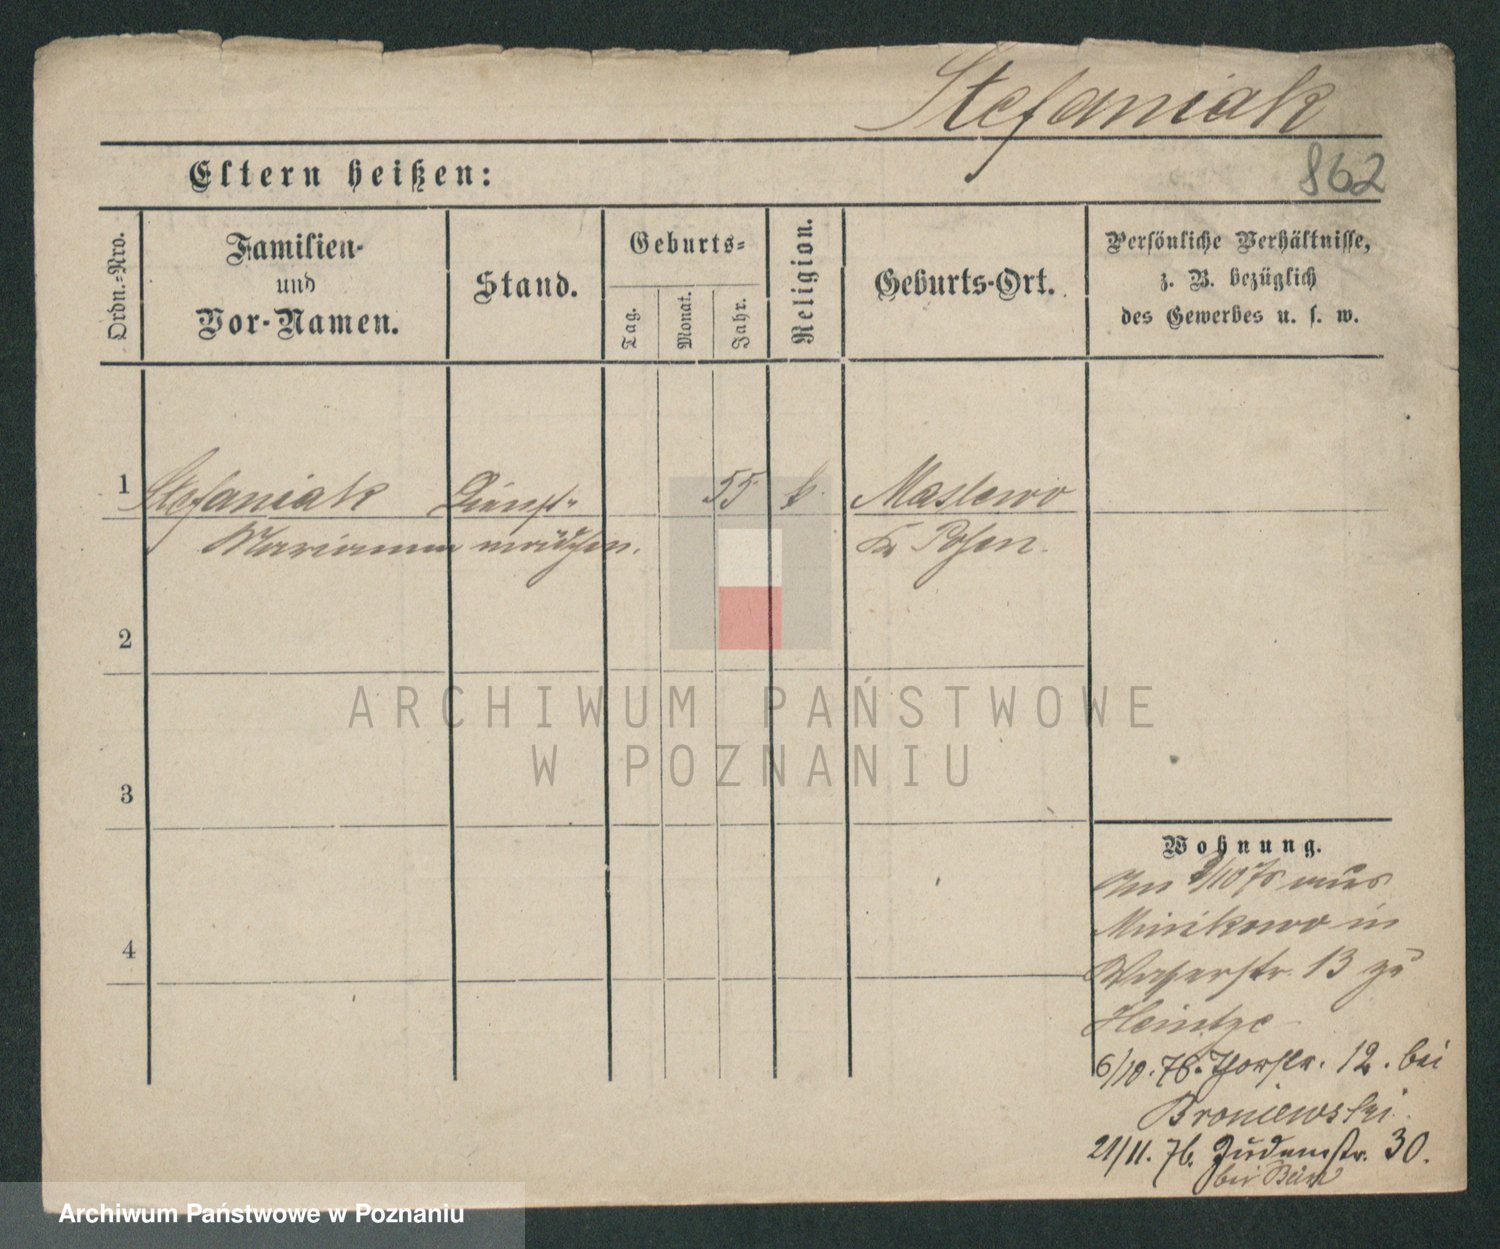 Stefaniak
862
Eltern heißen:
Ordn.-Nro.
Familien-
und
Vor-Namen.
Stand.
Geburts-
Tag.
Monat.
Jahr.
Religion.
Geburts-Ort.
Persönliche Verhältnisse,
z. B. bezüglich
des Gewerbes u. s. w.
1 Stefaniak Dienst- 55 k. Maslowo
Marianna mädchen. Kr Posen.
2
3
4
Wohnung.
Am /10 75 aus
Minikowo in
Wasserstr. 13 zu
Heintze
6/10. 76. Torstr. 12. bei
Broniewski.
21/11. 76. Judenstr. 30.
bei
ARCHIWUM PAŃSTWOWE
W POZNANIU
Archiwum Państwowe w Poznaniu